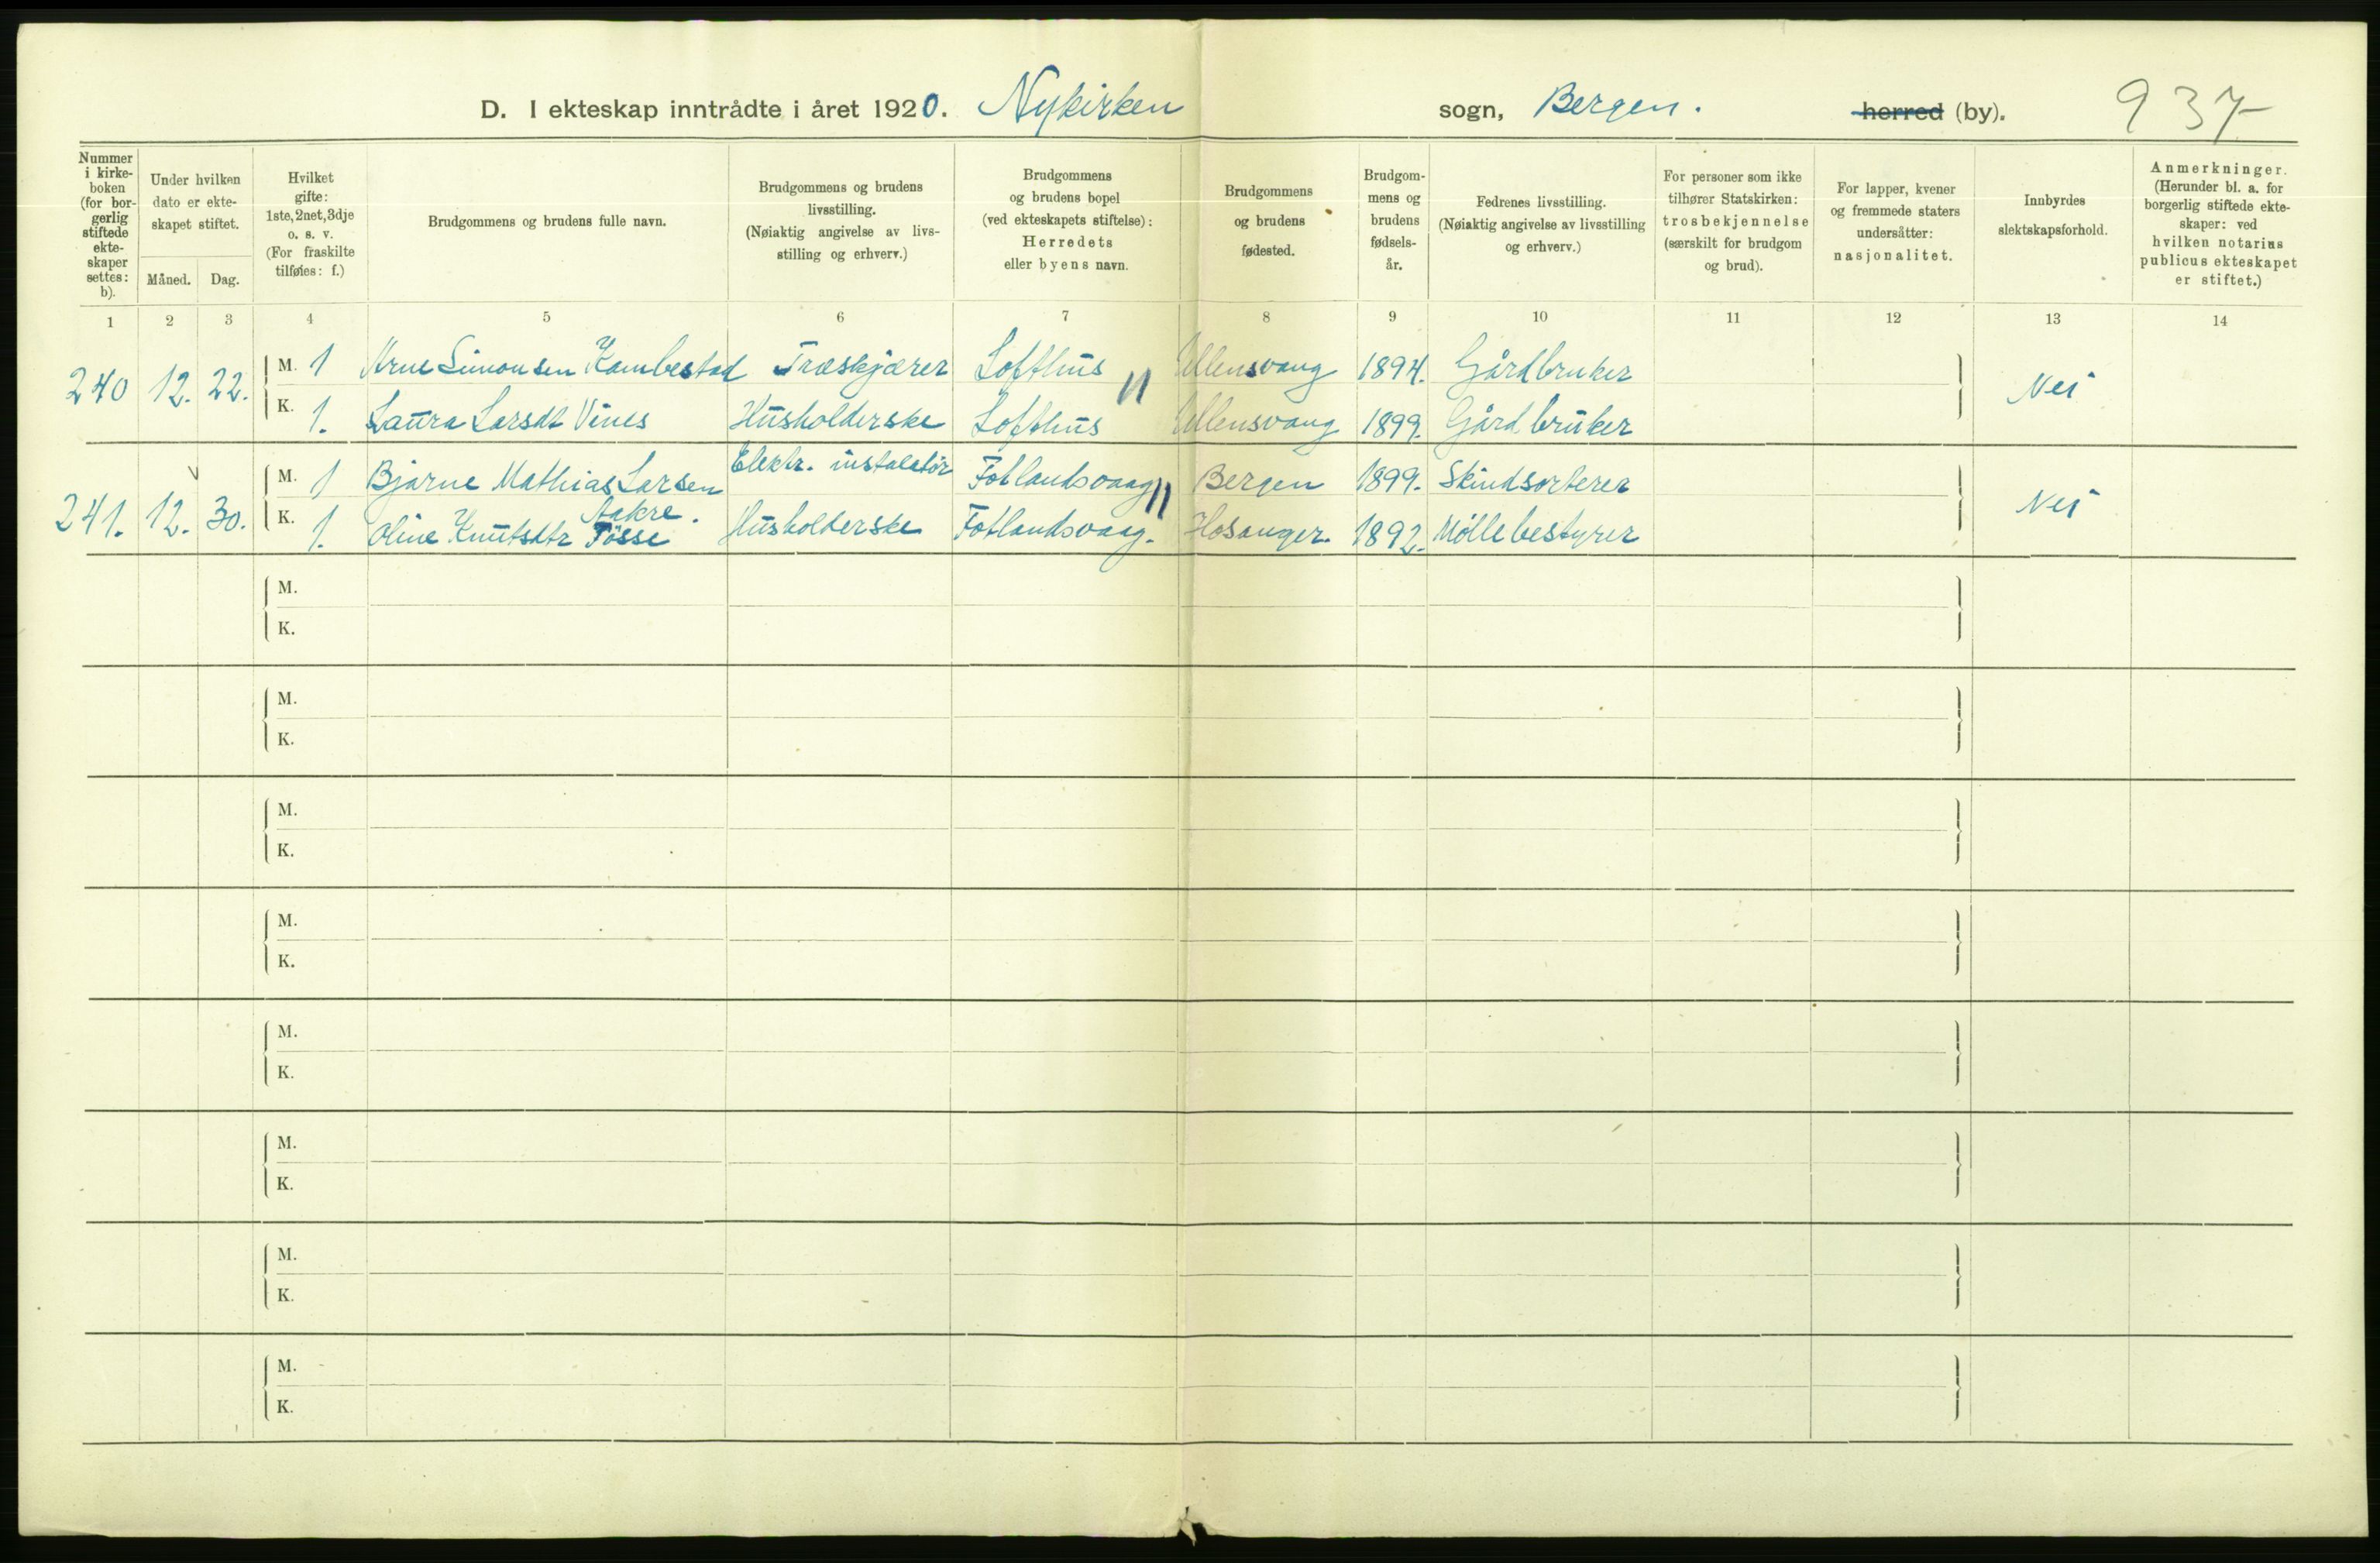 D. I ekteskap inntrådte i året 1920. Nykirken sogn, Bergen. herred (by). 937
Nummer i kirke-boken (for bor-gerlig stiftede ekte-skaper settes: b).
Under hvilken dato er ekte-skapet stiftet.
Måned. Dag.
Hvilket gifte: 1ste, 2net, 3dje o. s. v. (For fraskilte tilføies: f.)
Brudgommens og brudens fulle navn.
Brudgommens og brudens livsstilling. (Nøiaktig angivelse av livs-stilling og erhverv.)
Brudgommens og brudens bopel (ved ekteskapets stiftelse): Herredets eller byens navn.
Brudgommens og brudens fødested.
Brudgom-mens og brudens fødsels-år.
Fedrenes livsstilling. (Nøiaktig angivelse av livsstilling og erhverv.)
For personer som ikke tilhører Statskirken: trosbekjennelse (særskilt for brudgom og brud).
For lapper, kvener og fremmede staters undersåtter: nasjonalitet.
Innbyrdes slektskapsforhold.
Anmerkninger. (Herunder bl. a. for borgerlig stiftede ekte-skaper: ved hvilken notarius publicus ekteskapet er stiftet.)
1 2 3 4 5 6 7 8 9 10 11 12 13 14
240 12. 22. M. 1 Arne Simonsen Kambestad Træskjærer Lofthus Ullensvang 1894. Gårdbruker Nei
K. 1. Laura Larsdt Vines Husholderske Lofthus Ullensvang 1899. Gårdbruker
241. 12. 30. M. 1 Bjarne Mathias Larsen Elektr. instalatør Fotlandsvaag Bergen 1899. Skindsorterer Nei
Aakre.
K. 1. Oline Knutsdtr Tösse Husholderske Fotlandsvaag. Hosanger. 1892. Møllebestyrer
M.
K.
M.
K.
M.
K.
M.
K.
M.
K.
M.
K.
M.
K.
M.
K.